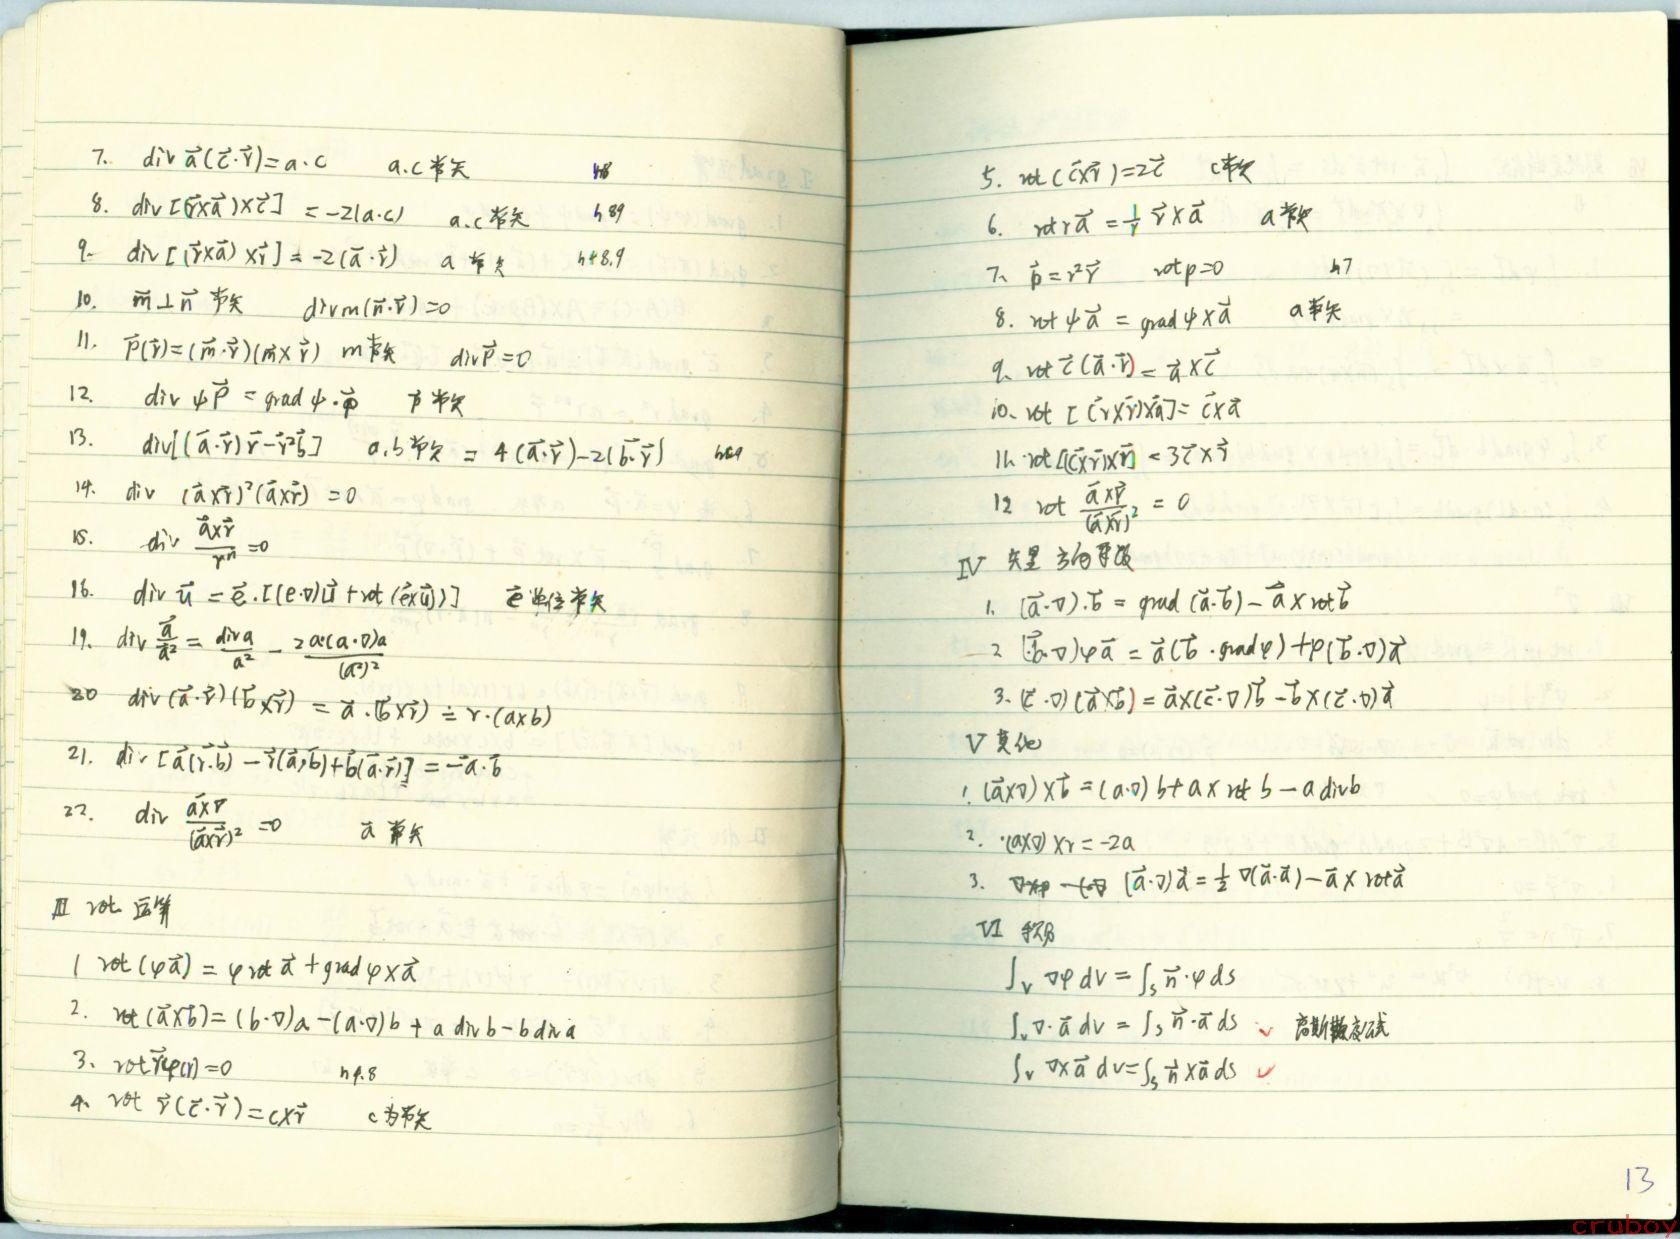 7. div a⃗(c⃗·r⃗)=a·c a.c 常矢 h8
8. div[(r⃗×a⃗)×c⃗] = -2(a·c) a.c 常矢 h89
9. div[(r⃗×a⃗)×r⃗] = -2(a⃗·r⃗) a 常矢 h+8.9
10. m⃗⊥n⃗ 常矢 div m(n⃗·r⃗)=0
11. P⃗(r⃗)=(m⃗·r⃗)(m⃗×r⃗) m常矢 div P⃗=0
12. div ψP⃗ = grad ψ·p⃗ p⃗ 常矢
13. div[(a⃗·r⃗)r⃗-r⃗²b⃗] a,b 常矢 = 4(a⃗·r⃗)-2(b⃗·r⃗)
14. div (a⃗×r⃗)²(a⃗×r⃗) = 0
15. div (a⃗×r⃗)/rⁿ =0
16. div u⃗ = e⃗·[(e·∇)u⃗+rot(e⃗×u⃗)] e⃗ 单位常矢
19. div a⃗/a² = div a/a² - 2a·(a·∇)a/(a²)²
20 div(a⃗·r⃗)(b⃗×r⃗) = a⃗·(b⃗×r⃗) = r·(a×b)
21. div[a⃗(r⃗·b⃗)-r⃗(a⃗,b⃗)+b⃗(a⃗·r⃗)] = -a⃗·b⃗
22. div (a⃗×r⃗)/(a⃗×r⃗)² =0 a⃗ 常矢
III rot 运算
1 rot(φa⃗) = φ rot a⃗ + grad φ×a⃗
2. rot(a⃗×b⃗)=(b·∇)a-(a·∇)b + a div b - b div a
3. rot r⃗φ(r)=0 h9.8
4. rot r⃗(c⃗·r⃗)=c×r⃗ c为常矢
5. rot(c⃗×r⃗)=2c⃗ c常矢
6. rot r a⃗ = 1/r r⃗×a⃗ a常矢
7. p⃗=r²r⃗ rot p=0 h7
8. rot ψa⃗ = grad ψ×a⃗ a常矢
9. rot c⃗(a⃗·r⃗)=a⃗×c⃗
10. rot[(r×r⃗)×a⃗]=c⃗×a⃗
11. rot[(c⃗×r⃗)×r⃗] = 3c⃗×r⃗
12 rot (a⃗×r⃗)/(a⃗×r⃗)² = 0
IV 矢量方向导数
1. (a⃗·∇)·b⃗ = grad(a⃗·b⃗)-a⃗×rot b⃗
2 (b⃗·∇)φa⃗ = a⃗(b⃗·grad φ)+φ(b⃗·∇)a⃗
3. (c⃗·∇)(a⃗×b⃗)=a⃗×(c⃗·∇)b⃗-b⃗×(c⃗·∇)a⃗
V 其他
1. (a⃗×∇)×b⃗=(a·∇)b+a×rot b-a div b
2. (a×∇)×r=-2a
3. (a⃗·∇)a⃗=½∇(a⃗·a⃗)-a⃗×rot a⃗
VI 积分
∫ᵥ ∇φ dv = ∫ₛ n⃗·φ ds
∫ᵥ ∇·a⃗ dv = ∫ₛ n⃗·a⃗ ds ✓ 高斯散度公式
∫ᵥ ∇×a⃗ dv=∫ₛ n⃗×a⃗ ds ✓
13
cruboy